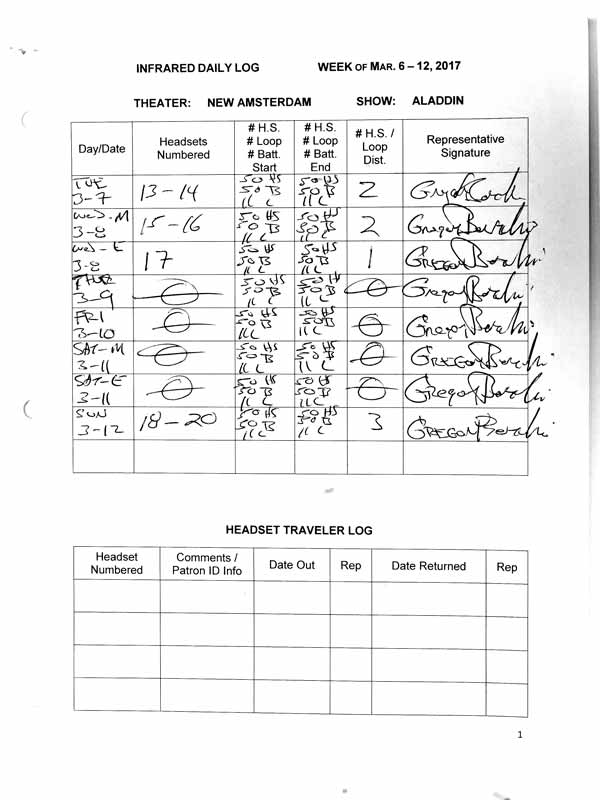 INFRARED DAILY LOG WEEK OF MAR. 6 – 12, 2017
THEATER: NEW AMSTERDAM SHOW: ALADDIN
Day/Date Headsets Numbered # H.S. # Loop # Batt. Start # H.S. # Loop # Batt. End # H.S. / Loop Dist. Representative Signature
TUE 3-7 13-14 50 HS 50 B 11 L 50 HS 50 B 11 C 2
WED. M 3-8 15-16 50 HS 50 B 11 L 50 HS 50 B 11 C 2 Gregory
WED - E 3-8 17 50 HS 50 B 11 L 50 HS 50 B 11 C 1 GREGORY
THUR 3-9 0 50 HS 50 B 11 C 50 HS 50 B 11 C 0 Gregory
FRI 3-10 0 50 HS 50 B 11 C 50 HS 50 B 11 C 0 Gregory
SAT-M 3-11 0 50 HS 50 B 11 C 50 HS 50 B 11 C 0 GREGORY
SAT-E 3-11 0 50 HS 50 B 11 C 50 HS 50 B 11 C 0 Gregory
SUN 3-12 18-20 50 HS 50 B 11 C 50 HS 50 B 11 C 3 GREGORY
HEADSET TRAVELER LOG
Headset Numbered Comments / Patron ID Info Date Out Rep Date Returned Rep
1